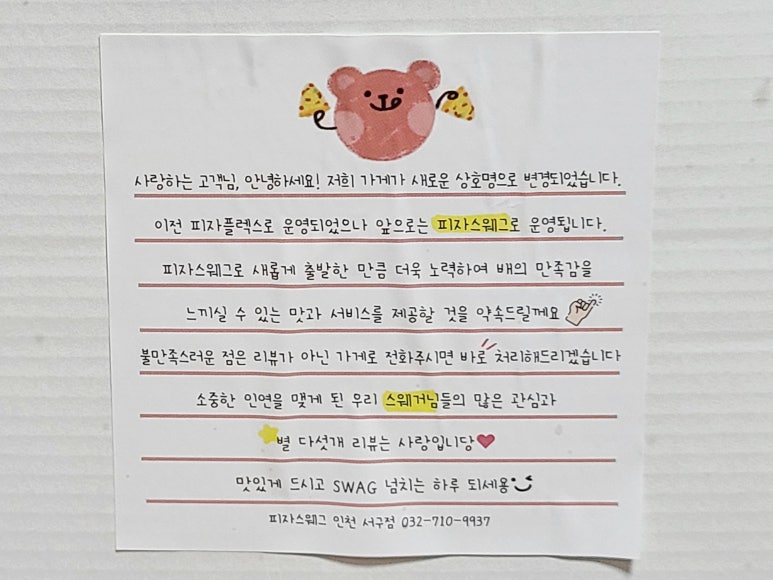 사랑하는 고객님, 안녕하세요! 저희 가게가 새로운 상호명으로 변경되었습니다.
이전 피자플렉스로 운영되었으나 앞으로는 피자스웨그로 운영됩니다.
피자스웨그로 새롭게 출발한 만큼 더욱 노력하여 배의 만족감을
느끼실 수 있는 맛과 서비스를 제공할 것을 약속드릴께요
불만족스러운 점은 리뷰가 아닌 가게로 전화주시면 바로 처리해드리겠습니다
소중한 인연을 맺게 된 우리 스웨거님들의 많은 관심과
별 다섯개 리뷰는 사랑입니당
맛있게 드시고 SWAG 넘치는 하루 되세용
피자스웨그 인천 서구점 032-710-9937